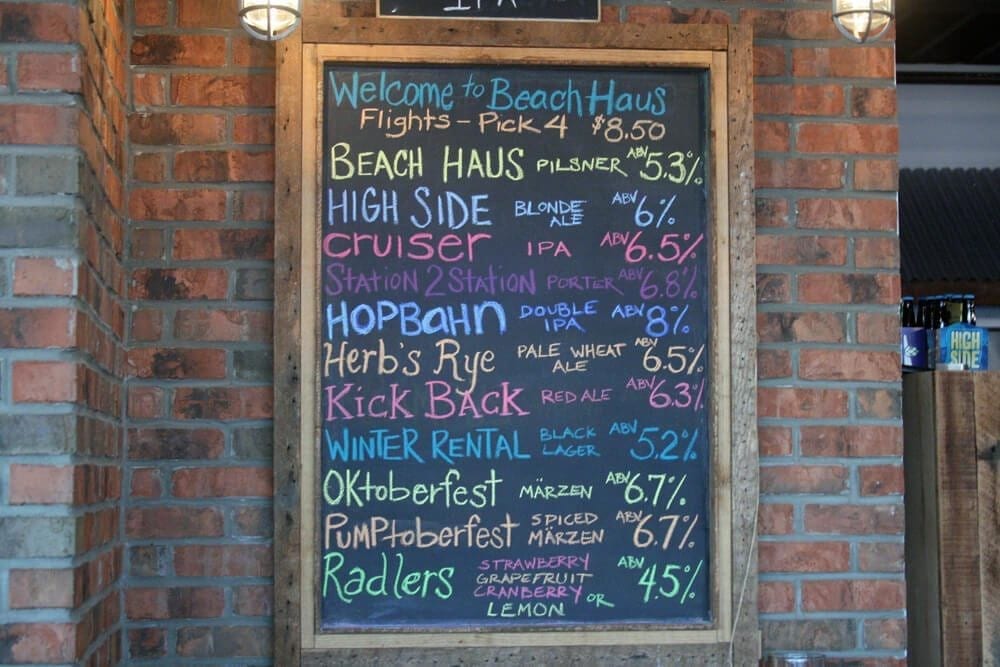 IPA
Welcome to Beach Haus
Flights - Pick 4 $8.50
BEACH HAUS PILSNER ABV 5.3%
HIGH SIDE BLONDE ALE ABV 6%
CRUISER IPA ABV 6.5%
STATION 2 STATION PORTER ABV 6.8%
HOPBAHN DOUBLE IPA ABV 8%
Herb's Rye PALE WHEAT ALE ABV 6.5%
Kick BACK RED ALE ABV 6.3%
WINTER RENTAL BLACK LAGER ABV 5.2%
OKtoberfest MÄRZEN ABV 6.7%
PUMPtoberfest SPICED MÄRZEN ABV 6.7%
Radlers STRAWBERRY GRAPEFRUIT CRANBERRY OR LEMON ABV 4.5%
HIGH SIDE